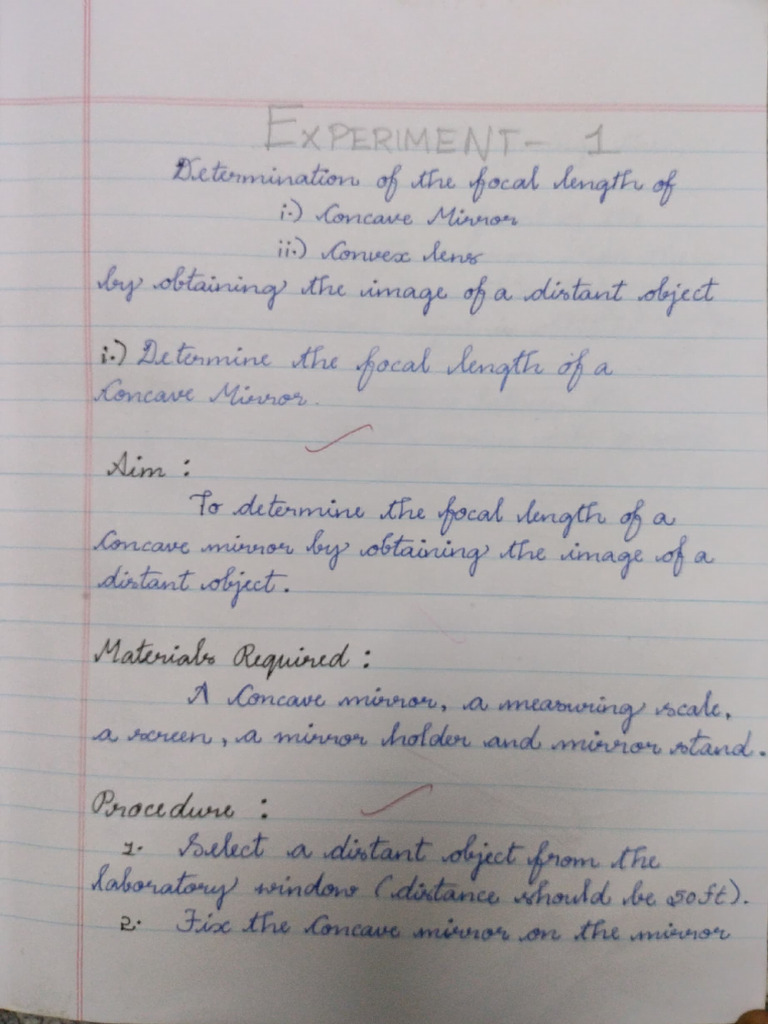 EXPERIMENT- 1
Determination of the focal length of
i.) Concave Mirror
ii.) Convex lens
by obtaining the image of a distant object
i.) Determine the focal length of a
Concave Mirror.
Aim :
To determine the focal length of a
Concave mirror by obtaining the image of a
distant object.
Materials Required :
A Concave mirror, a measuring scale,
a screen, a mirror holder and mirror stand.
Procedure :
1. Select a distant object from the
laboratory window (distance should be 50ft).
2. Fix the Concave mirror on the mirror